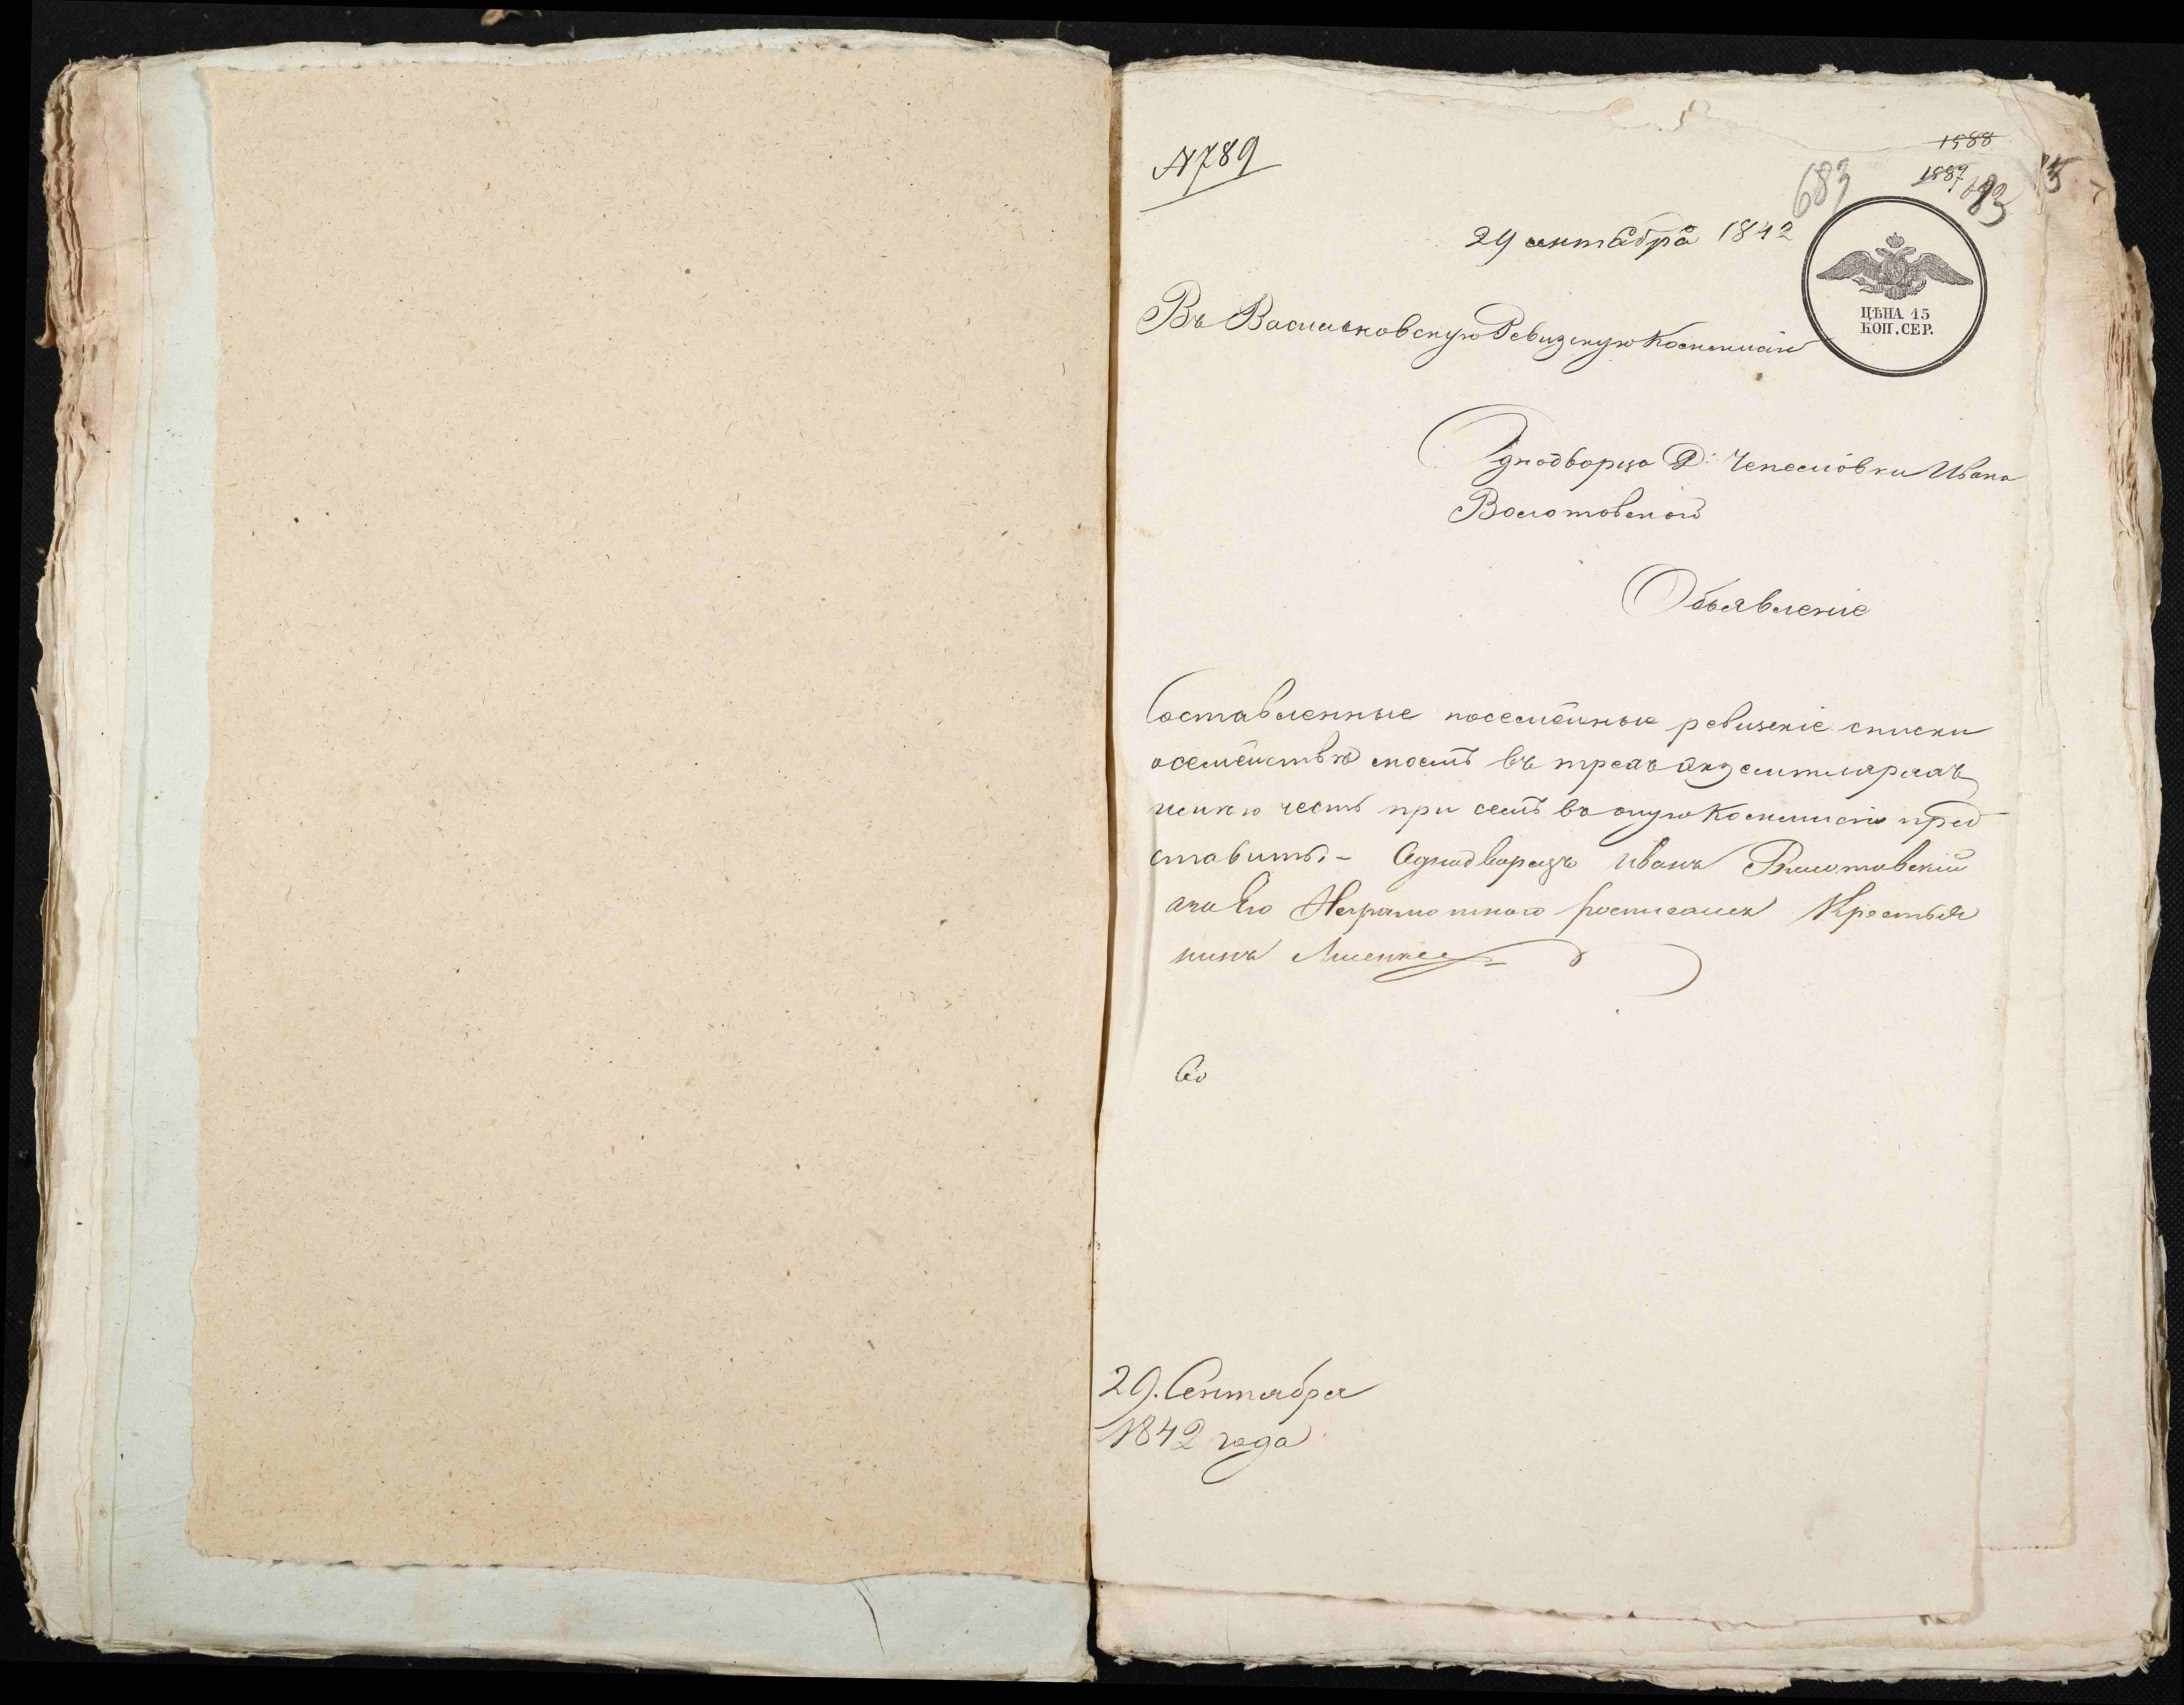 N789
1588
1887
683
683
29 сентября 1842
ЦѢНА 15
КОП. СЕР.
Въ Васильковскую Ревизскую Коммисію
Однодворца Д: Чепелiовки Ивана
Волотовской
Объявленіе
Составленные посемейные ревизскіе списки
осемействѣ моемъ въ трехъ экземплярахъ
имѣю честь при семъ во оную Коммисію пред
ставить. - Однодворецъ Иванъ Волотовскій
а за Его Неграмотного росписался Крестья
нинъ
29. Сентября
1842 года